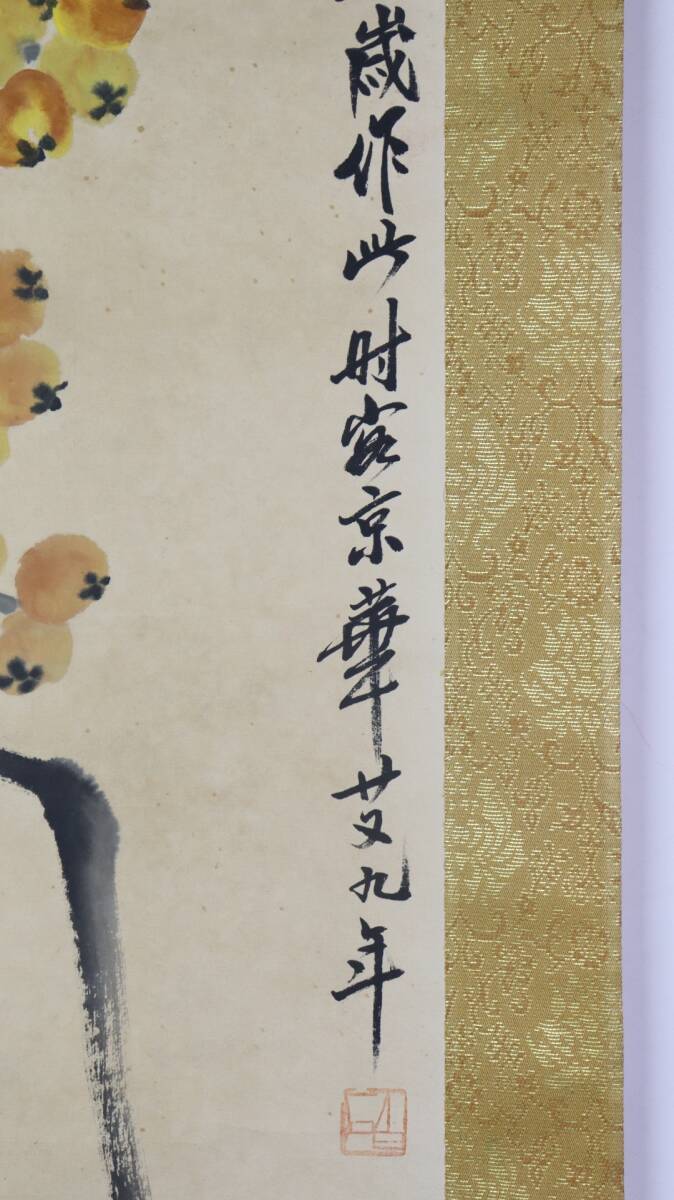 歲作此时客京華廿又九年